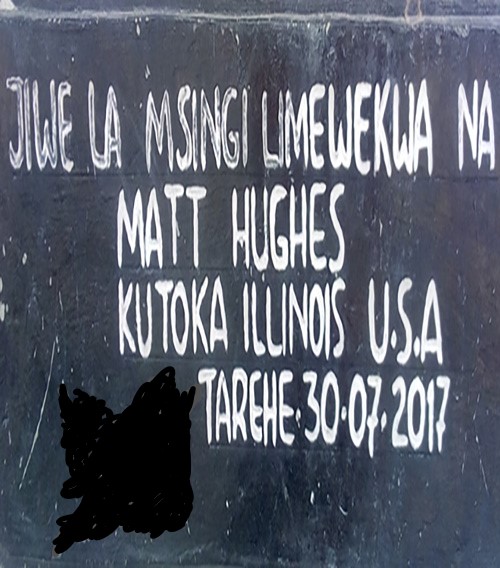 JIWE LA MSINGI LIMEWEKWA NA
MATT HUGHES
KUTOKA ILLINOIS U.S.A
TAREHE·30·07·2017